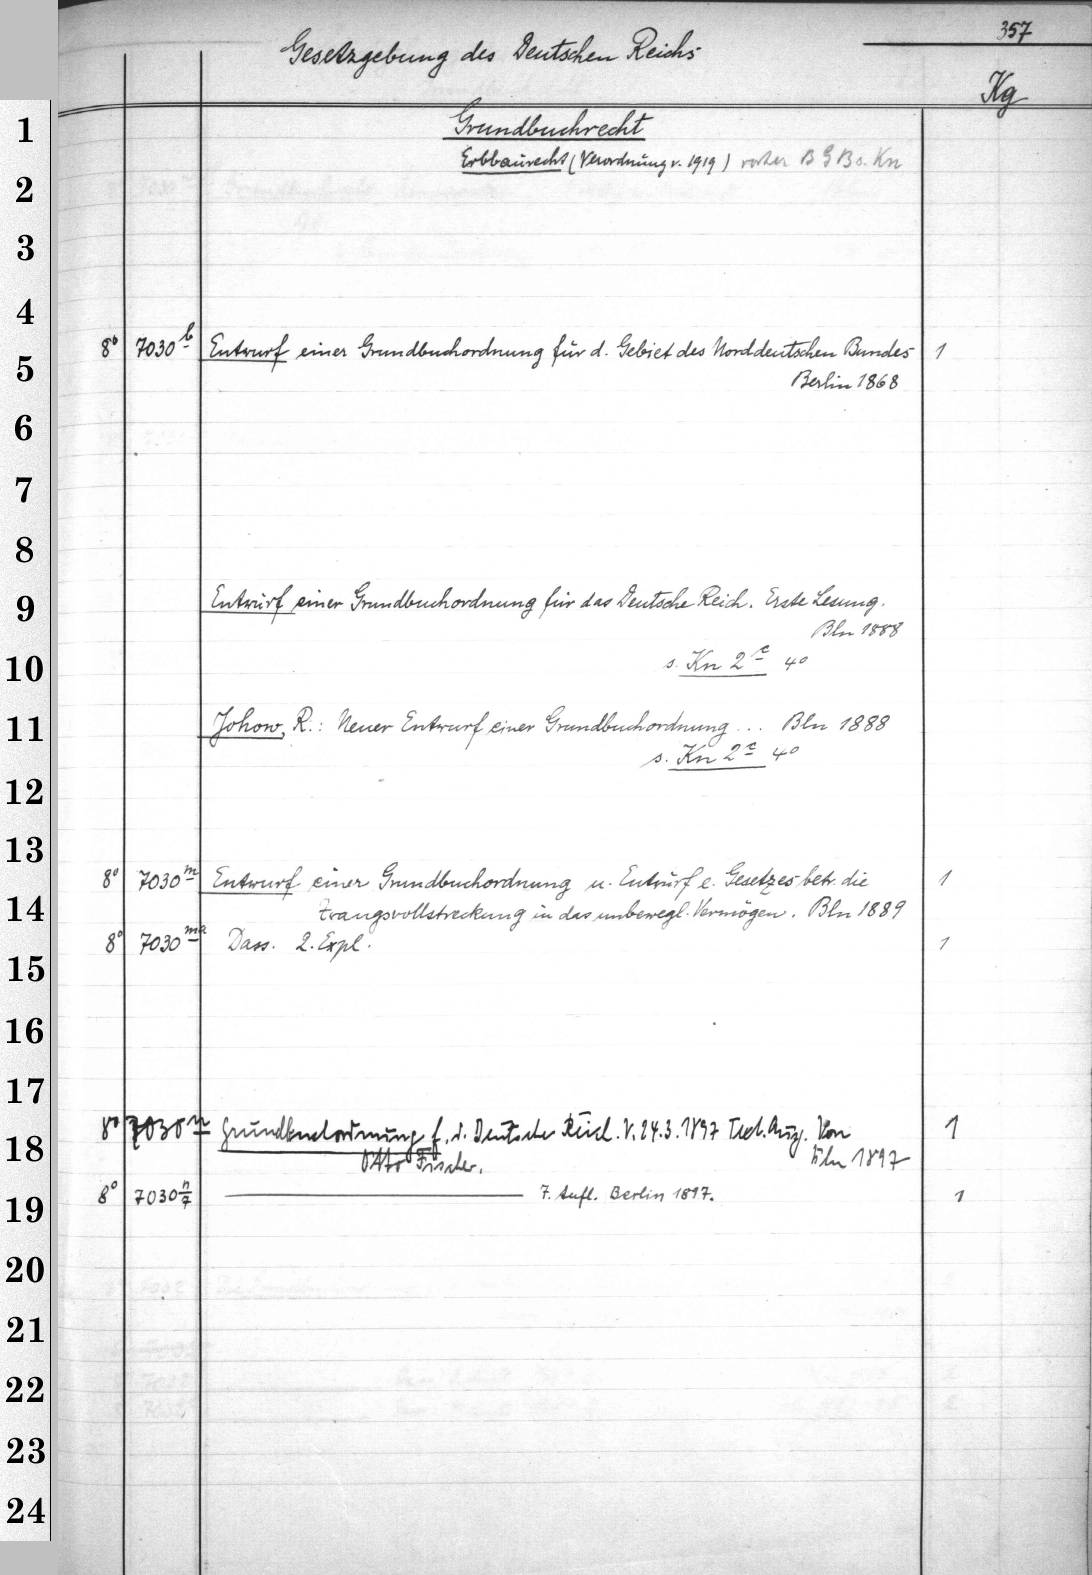 357
Gesetzgebung des Deutschen Reichs
Kg
1
Grundbuchrecht
Erbbaurecht (Verordnung v. 1919) vorher BGB s. Kn
2
3
4
8° 7030 b Entwurf einer Grundbuchordnung für d. Gebiet des Norddeutschen Bundes 1
5
Berlin 1868
6
7
8
9 Entwurf einer Grundbuchordnung für das Deutsche Reich. Erste Lesung.
Bln 1888
10 s. Kn 2 c 4°
11 Johow, R.: Neuer Entwurf einer Grundbuchordnung ... Bln 1888
s. Kn 2 c 4°
12
13
8° 7030 m Entwurf einer Grundbuchordnung u. Entwurf e. Gesetzes betr. die 1
14 Zwangsvollstreckung in das unbewegl. Vermögen. Bln 1889
8° 7030 ma Dass. 2. Expl. 1
15
16
17
8° 7030 n Grundbuchordnung f. d. Deutsche Reich. V. 24.3.1897 Text. Ausg. Von 1
18 Otto Fischer. Bln 1897
8° 7030 n/7 7. Aufl. Berlin 1897. 1
19
20
21
22
23
24